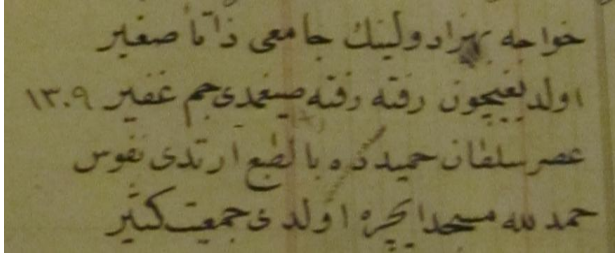 خواجه بهزاد ولينك جامعى ذاتاً صغير
اولديغيچون رفته رفته صيغمدى جم غفير ١٣٠٩
عصر سلطان حميدده بالطبع ارتدى نفوس
حمد لله مسجد ايچره اولدى جمعيت كثير